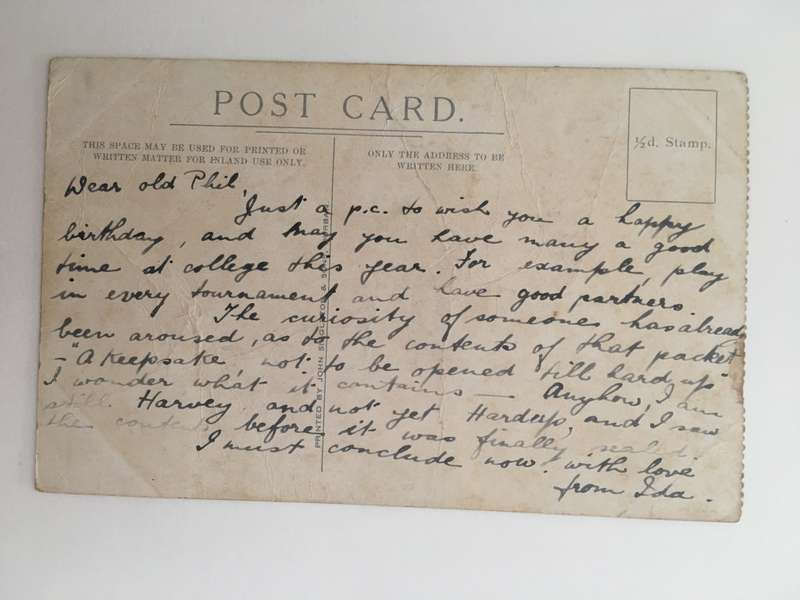 POST CARD.
THIS SPACE MAY BE USED FOR PRINTED OR
WRITTEN MATTER FOR INLAND USE ONLY.
ONLY THE ADDRESS TO BE
WRITTEN HERE.
½d. Stamp.
Dear old Phil,
Just a p.c. to wish you a happy
birthday, and may you have many a good
time at college this year. For example, play
in every tournament and have good partners.
The curiosity of someones has already
been aroused, as to the contents of that packet
- "A keepsake, not to be opened till hard up"
I wonder what it contains - Anyhow, I am
still Harvey and not yet Hardup, and I saw
the contents before it was finally sealed.
I must conclude now. with love
from Ida.
PRINTED BY JOHN &